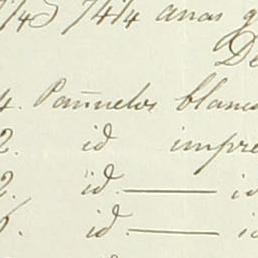 7 4/4 anas
De
4. Pañuelos blanco
2. id impre
2. id. —— id
6. id. —— id